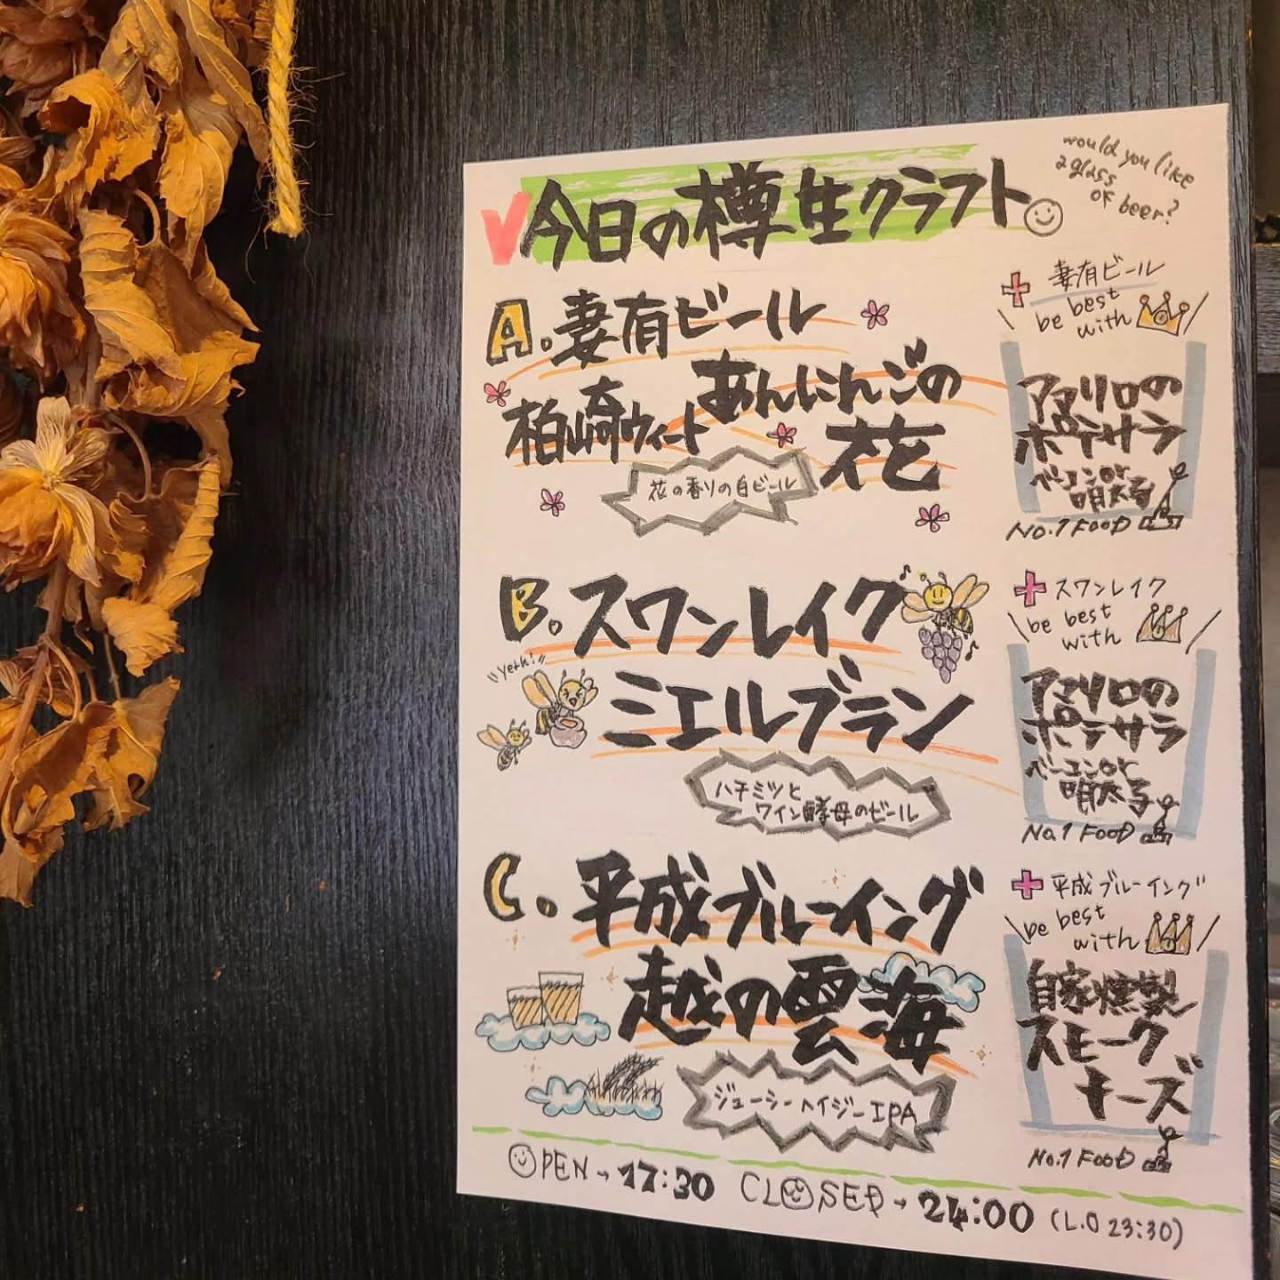 今日の樽生クラフト
would you like
a glass
of beer?
A.妻有ビール
柏崎ウィート あんにんごの
花
花の香りの白ビール
+妻有ビール
be best
with
アマリロの
ポテサラ
ベーコンor
明太子
NO.1 FOOD
B.スワンレイク
ミエルブラン
Yeah!!
ハチミツと
ワイン酵母のビール
+スワンレイク
be best
with
アマリロの
ポテサラ
ベーコンor
明太子
No.1 FOOD
C.平成ブルーイング
越の雲海
ジューシーヘイジーIPA
+平成ブルーイング
be best
with
自家燻製
スモーク
チーズ
No.1 FOOD
OPEN→17:30 CLOSED→24:00 (L.O 23:30)